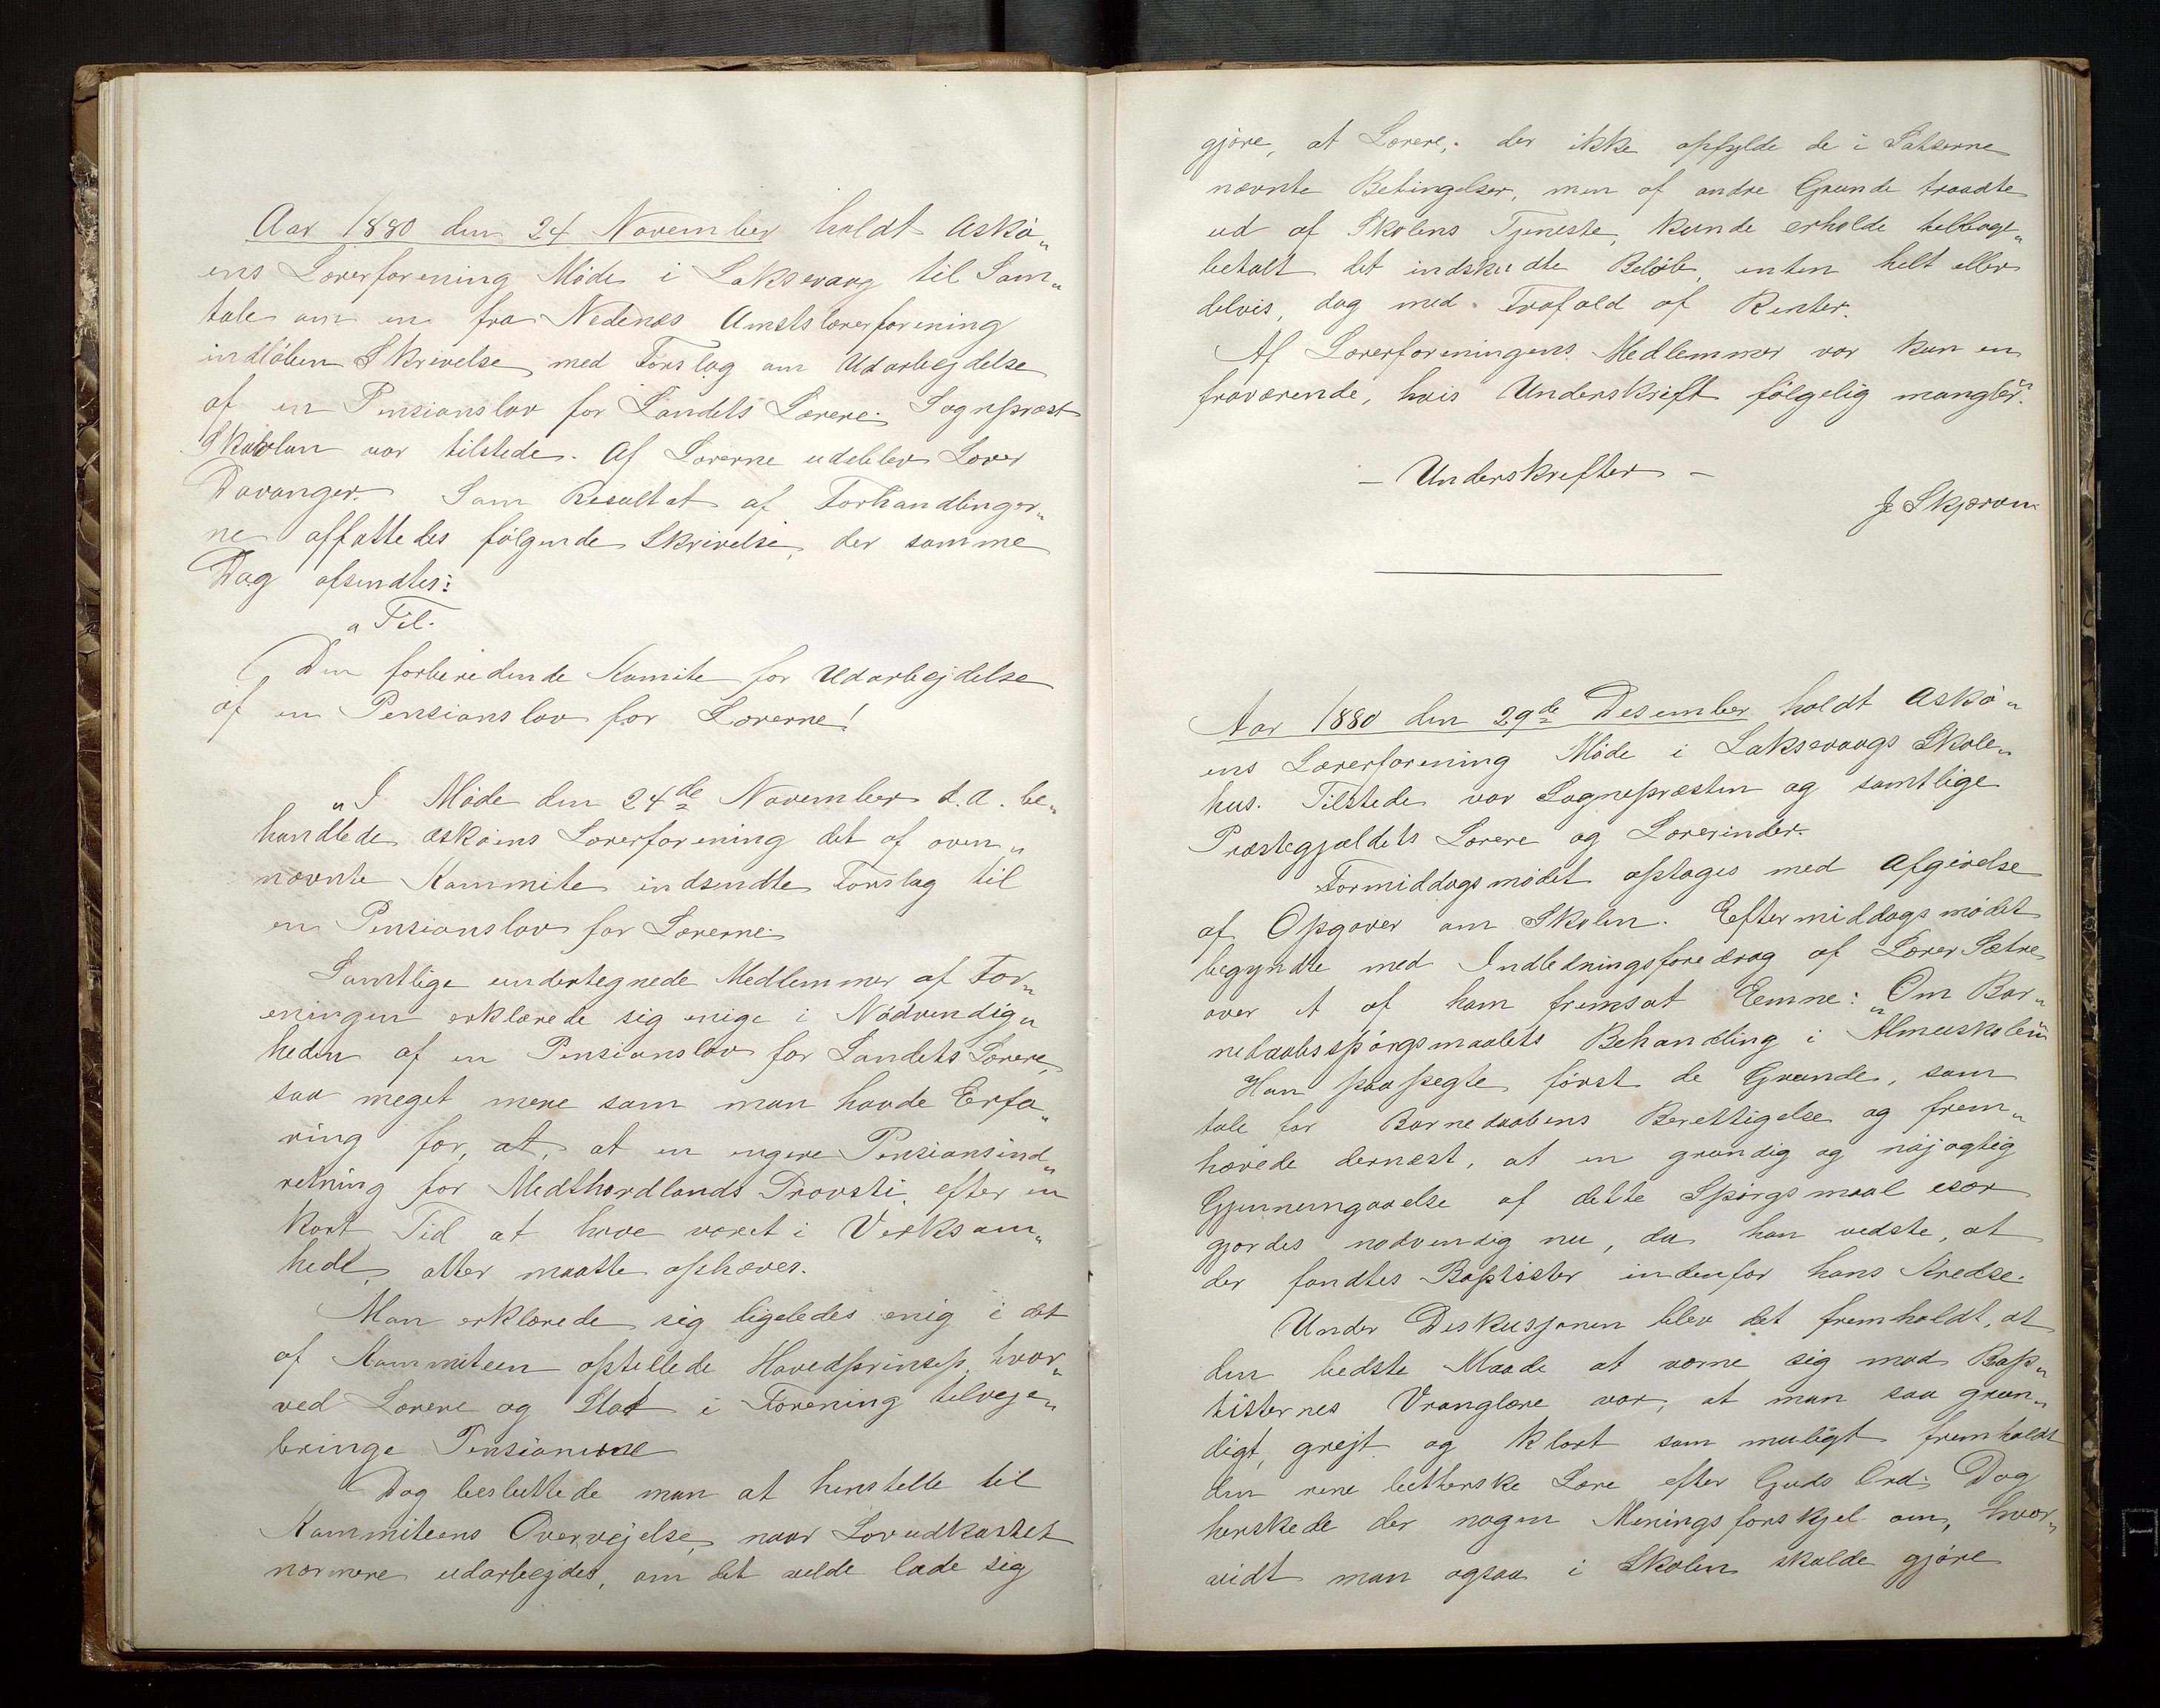 Aar 1880 den 24 November holdt Askø„
ens Lærerforening Møde i Laksevaag til Sam„
tale om en fra Nedenæs Amtslærerforening
indløben Skrivelse med Forslag om Udarbejdelse
af en Pensionslov for Landets Lærere. Sognepræst
var tilstede. Af Lærerne udeblev Lærer
Davanger. Som Resultat af Forhandlinger„
ne affattedes følgende Skrivelse, der samme
Dag afsendtes:
„Til
Den forberedende Komite for Udarbejdelse
af en Pensionslov for Lærerne!
„I Møde den 24de November d.A. be„
handlede Askøens Lærerforening det af oven„
nævnte Kommite indsendte Forslag til
en Pensionslov for Lærerne.
Samtlige undertegnede Medlemmer af For„
eningen erklærede sig enige i Nødvendig„
heden af en Pensionslov for Landets Lærere,
saa meget mere som man havde Erfa„
ring for, at, at en engere Pensionsind„
retning for Midthordlands Provsti, efter en
kort Tid at have været i Virksom„
hedt, atter maatte ophæves.
Man erklærede sig ligeledes enig i det
af Kommiteen opstillede Hovedprinsip, hvor„
ved Lærere og Stat i Forening tilveje„
bringe Pensionerne
Dog besluttede man at henstille til
Kommiteens Overvejelse, naar Lovudkastet
nærmere udarbejdes, om det vilde lade sig
gjøre, at Lærere, der ikke opfylde de i Satserne
nævnte Betingelser, men af andre Grunde traadte
ud af Skolens Tjeneste, kunde erholde tilbage„
betalt det indskudte Beløb, enten helt eller
delvis, dog med Frafald af Renter.
Af Lærerforeningens Medlemmer var kun en
fraværende, hvis Underskrift følgelig mangler."
– Underskrifter –
J. Skjærven
Aar 1880 den 29de Desember holdt Askø„
ens Lærerforening Møde i Laksevaags Skole„
hus. Tilstede var Sognepræsten og samtlige
Præstegjældets Lærere og Lærerinder.
Formiddagsmødet optoges med Afgivelse
af Opgaver om Skolen. Eftermiddagsmødet
begyndte med Indledningsforedrag af Lærer Sætre
over et af ham fremsat Eemne: „Om Bar„
nedaabsspørgsmaalets Behandling i Almueskolen"
Han paapegte først de Grunde, som
tale for Barnedaabens Berettigelse og frem„
hævede dernæst, at en grundig og nøjagtig
Gjennemgaaelse af dette Spørgsmaal især
gjordes nødvendig nu, da han vidste, at
der fandtes Baptister indenfor hans Kredse.
Under Diskusjonen blev det fremholdt, at
den bedste Maade at værne sig mod Bap„
tisternes Vranglære var, at man saa grun„
digt, grejt og klart som muligt fremholdt
den rene lutherske Lære efter Guds Ord. Dog
herskede der nogen Meningsforskjel om, hvor„
vidt man ogsaa i Skolen skulde gjøre